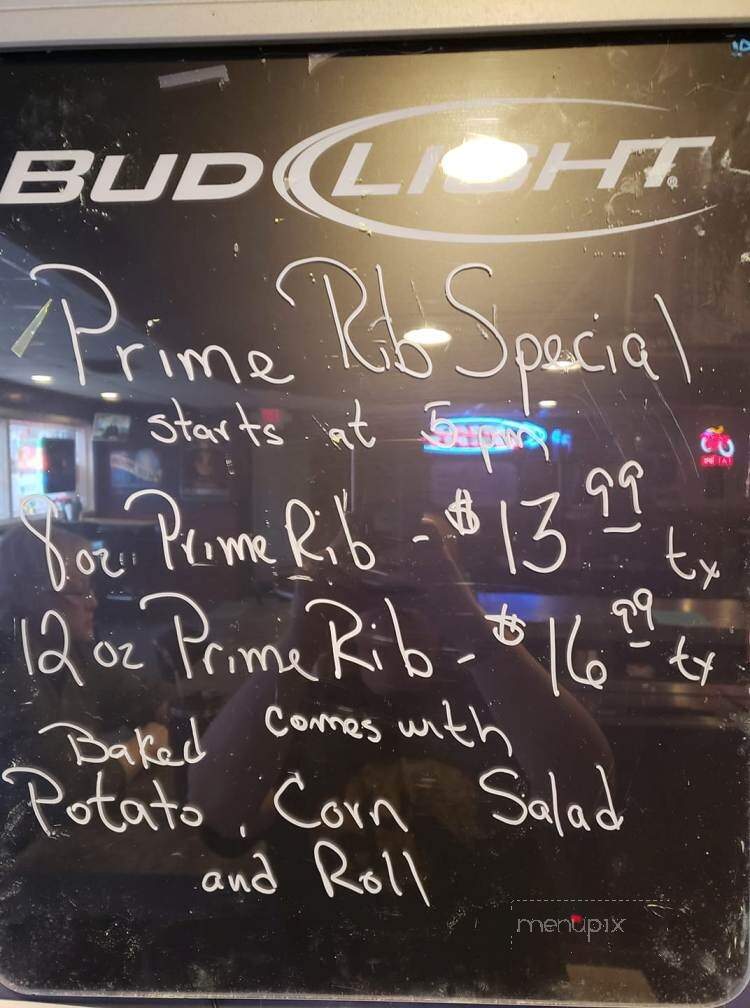 BUD LIGHT®
Prime Rib Special
starts at 5 pm
8 oz Prime Rib - $13.99 tx
12 oz Prime Rib - $16.99 tx
comes with
Baked
Potato, Corn Salad
and Roll
menupix